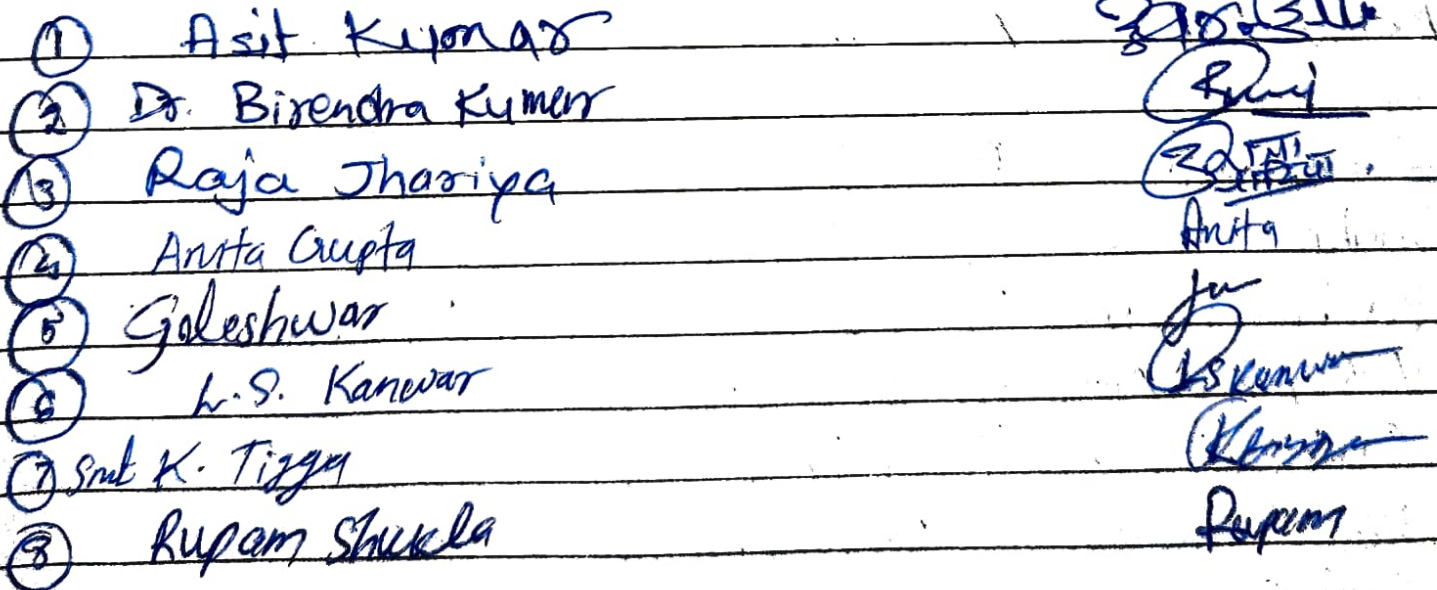 ① Asit Kumar
② Dr. Birendra Kumar
③ Raja Jhariya
④ Anita Gupta Anita
⑤ Goleshwar
⑥ L.S. Kanwar LS Kanwar
⑦ Smt K. Tigga
⑧ Rupam Shukla Rupam